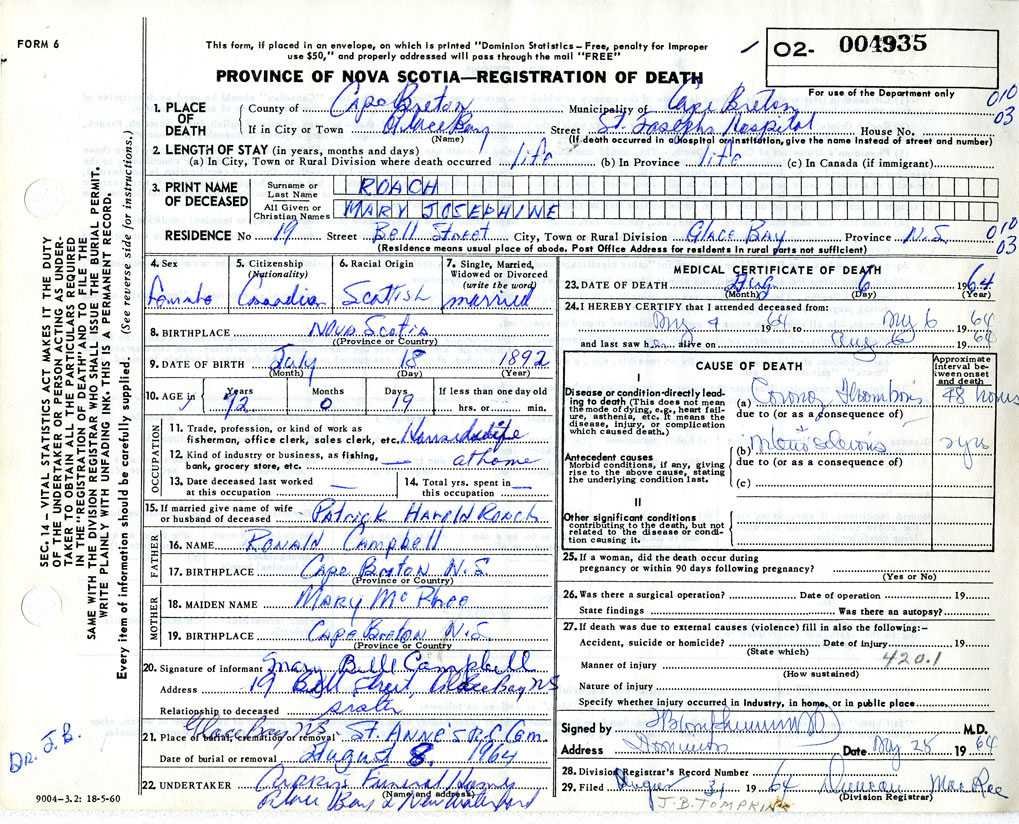 FORM 6
This form, if placed in an envelope, on which is printed "Dominion Statistics – Free, penalty for improper
use $50," and properly addressed will pass through the mail "FREE"
O2- 004935
For use of the Department only
PROVINCE OF NOVA SCOTIA—REGISTRATION OF DEATH
010
03
1. PLACE OF DEATH
County of Cape Breton Municipality of Cape Breton
If in City or Town Glace Bay Street St. Josephs Hospital House No.
(Name) (If death occurred in a hospital or institution, give the name instead of street and number)
2. LENGTH OF STAY (in years, months and days)
(a) In City, Town or Rural Division where death occurred life (b) In Province life (c) In Canada (if immigrant)
3. PRINT NAME OF DECEASED
Surname or Last Name ROACH
All Given or Christian Names MARY JOSEPHINE
RESIDENCE No 19 Street Bell Street City, Town or Rural Division Glace Bay Province N.S.
(Residence means usual place of abode. Post Office Address for residents in rural parts not sufficient)
010
03
4. Sex female
5. Citizenship (Nationality) Canadia
6. Racial Origin Scottish
7. Single, Married, Widowed or Divorced (write the word) married
8. BIRTHPLACE Nova Scotia
(Province or Country)
9. DATE OF BIRTH July 18 1892
(Month) (Day) (Year)
10. AGE in Years 72 Months 0 Days 19 If less than one day old hrs. or min.
OCCUPATION
11. Trade, profession, or kind of work as
fisherman, office clerk, sales clerk, etc.
12. Kind of industry or business, as fishing,
bank, grocery store, etc. — at home
13. Date deceased last worked
at this occupation —
14. Total yrs. spent in
this occupation —
15. If married give name of wife
or husband of deceased Patrick Roach
FATHER
16. NAME Campbell
17. BIRTHPLACE Cape Breton N.S.
(Province or Country)
MOTHER
18. MAIDEN NAME Mary McPhee
19. BIRTHPLACE Cape Breton N.S.
(Province or Country
20. Signature of informant Mary Belle Campbell
Address 19 Bell Street, Glace Bay NS
Relationship to deceased
21. Place of burial, cremation or removal Glace Bay NS - St. Anne's Cem.
Date of burial or removal August 8, 1964
22. UNDERTAKER Funeral Home
(Name and address)
Glace Bay & New Waterford
9004-3.2: 18-5-60
SEC. 14 – VITAL STATISTICS ACT MAKES IT THE DUTY
OF THE UNDERTAKER OR PERSON ACTING AS UNDER-
TAKER TO OBTAIN ALL THE PARTICULARS REQUIRED
IN THE "REGISTRATION OF DEATH" AND TO FILE THE
SAME WITH THE DIVISION REGISTRAR WHO SHALL ISSUE THE BURIAL PERMIT.
WRITE PLAINLY WITH UNFADING INK. THIS IS A PERMANENT RECORD.
Every item of information should be carefully supplied. (See reverse side for instructions.)
Dr. J.B.
MEDICAL CERTIFICATE OF DEATH
23. DATE OF DEATH Aug 6 1964
(Month) (Day) (Year)
24. I HEREBY CERTIFY that I attended deceased from:
Aug 4 1964 to Aug 6 1964
and last saw her alive on Aug 6 1964
CAUSE OF DEATH
Approximate interval between onset and death
I
Disease or condition directly lead-
ing to death (This does not mean
the mode of dying, e.g., heart fail-
ure, asthenia, etc. It means the
disease, injury, or complication
which caused death.)
(a) Coronary Thrombosis 48 hours
due to (or as a consequence of)
Antecedent causes
Morbid conditions, if any, giving
rise to the above cause, stating
the underlying condition last.
(b) yrs
due to (or as a consequence of)
(c)
II
Other significant conditions
contributing to the death, but not
related to the disease or condi-
tion causing it.
25. If a woman, did the death occur during
pregnancy or within 90 days following pregnancy?
(Yes or No)
26. Was there a surgical operation? Date of operation 19
State findings Was there an autopsy?
27. If death was due to external causes (violence) fill in also the following:–
Accident, suicide or homicide? Date of injury 19
(State which)
420.1
Manner of injury
(How sustained)
Nature of injury
Specify whether injury occurred in Industry, in home, or in public place
Signed by M.D.
Address Dominion Date Aug 28 1964
28. Division Registrar's Record Number
29. Filed August 31 1964 Duncan MacRae
(Division Registrar)
J.B. TOMPKINS